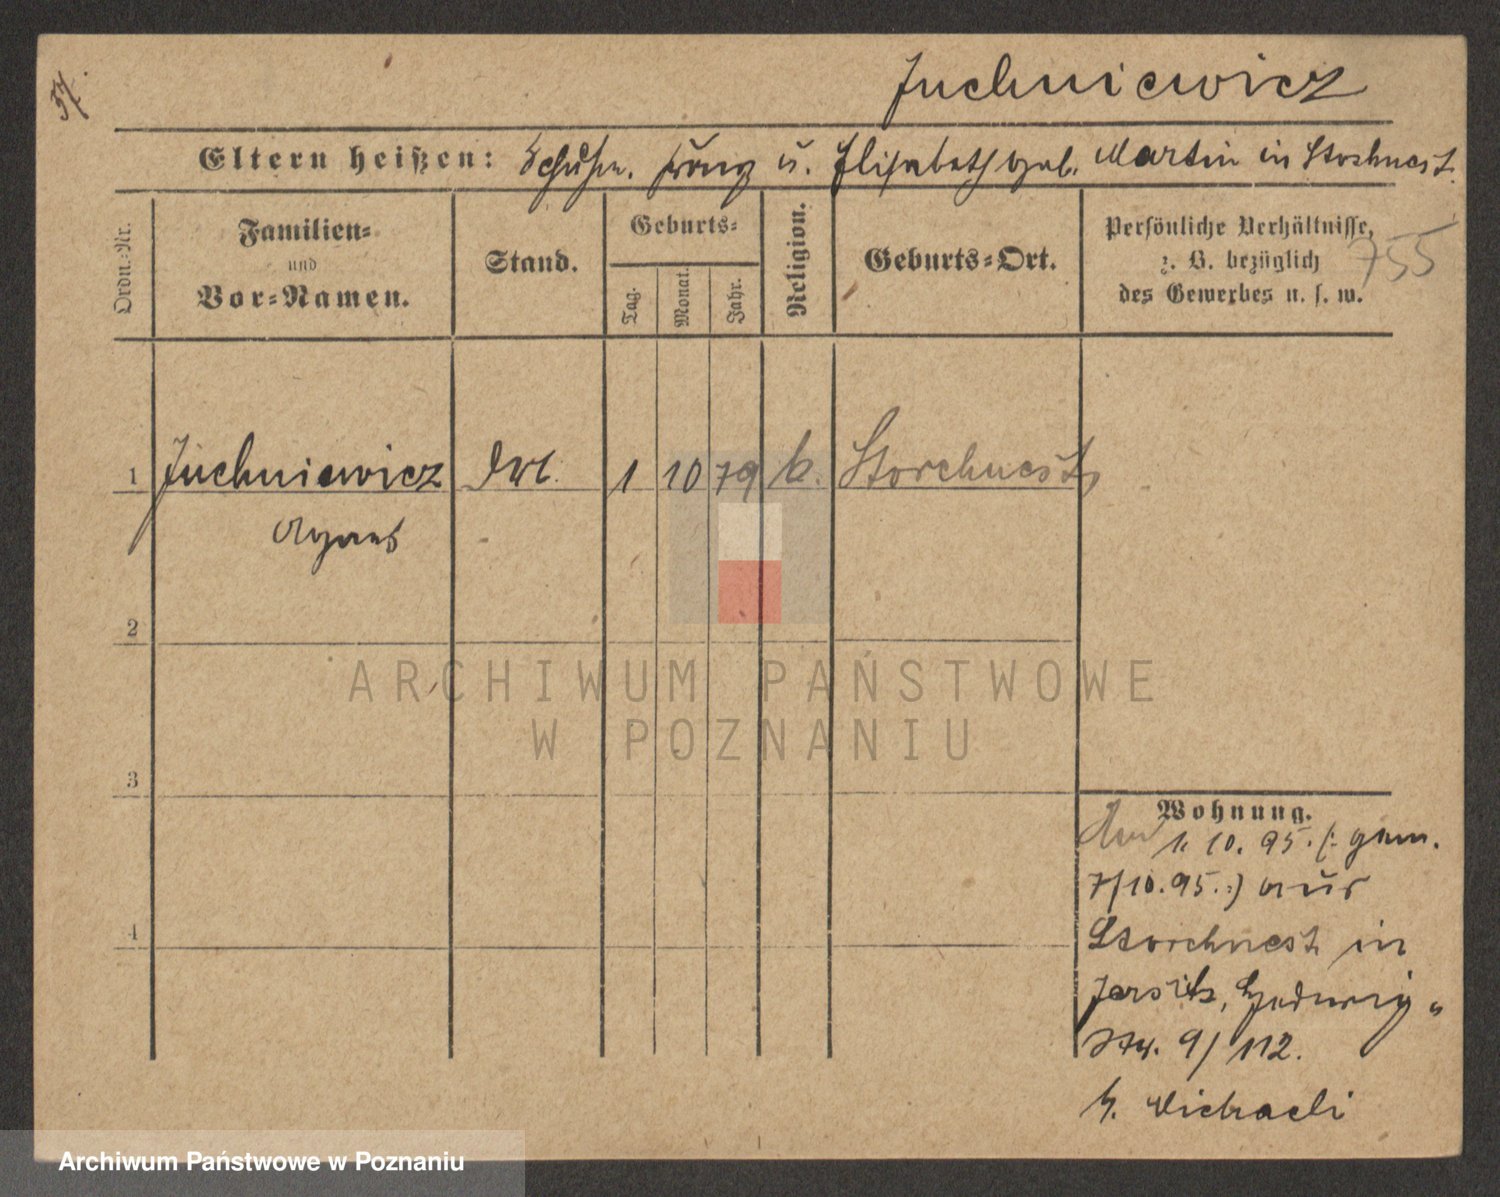 57.
Juchniewicz
Eltern heißen: Schuhm. Franz u. Elisabeth geb. Martin in Storchnest.
Ordn.-Nr.
Familien-
und
Vor-Namen.
Stand.
Geburts-
Tag.
Monat.
Jahr.
Religion.
Geburts-Ort.
Persönliche Verhältnisse,
z. B. bezüglich
des Gewerbes u. s. w.
755
1 Juchniewicz 1 10 79 k. Storchnest
Agnes
2
3
4
ARCHIWUM PAŃSTWOWE
W POZNANIU
Wohnung.
1. 10. 95. (: gem.
7/10. 95. :) aus
Storchnest in
Jersitz, Hedwig-
Str. 9/112.
b. Michaeli
Archiwum Państwowe w Poznaniu